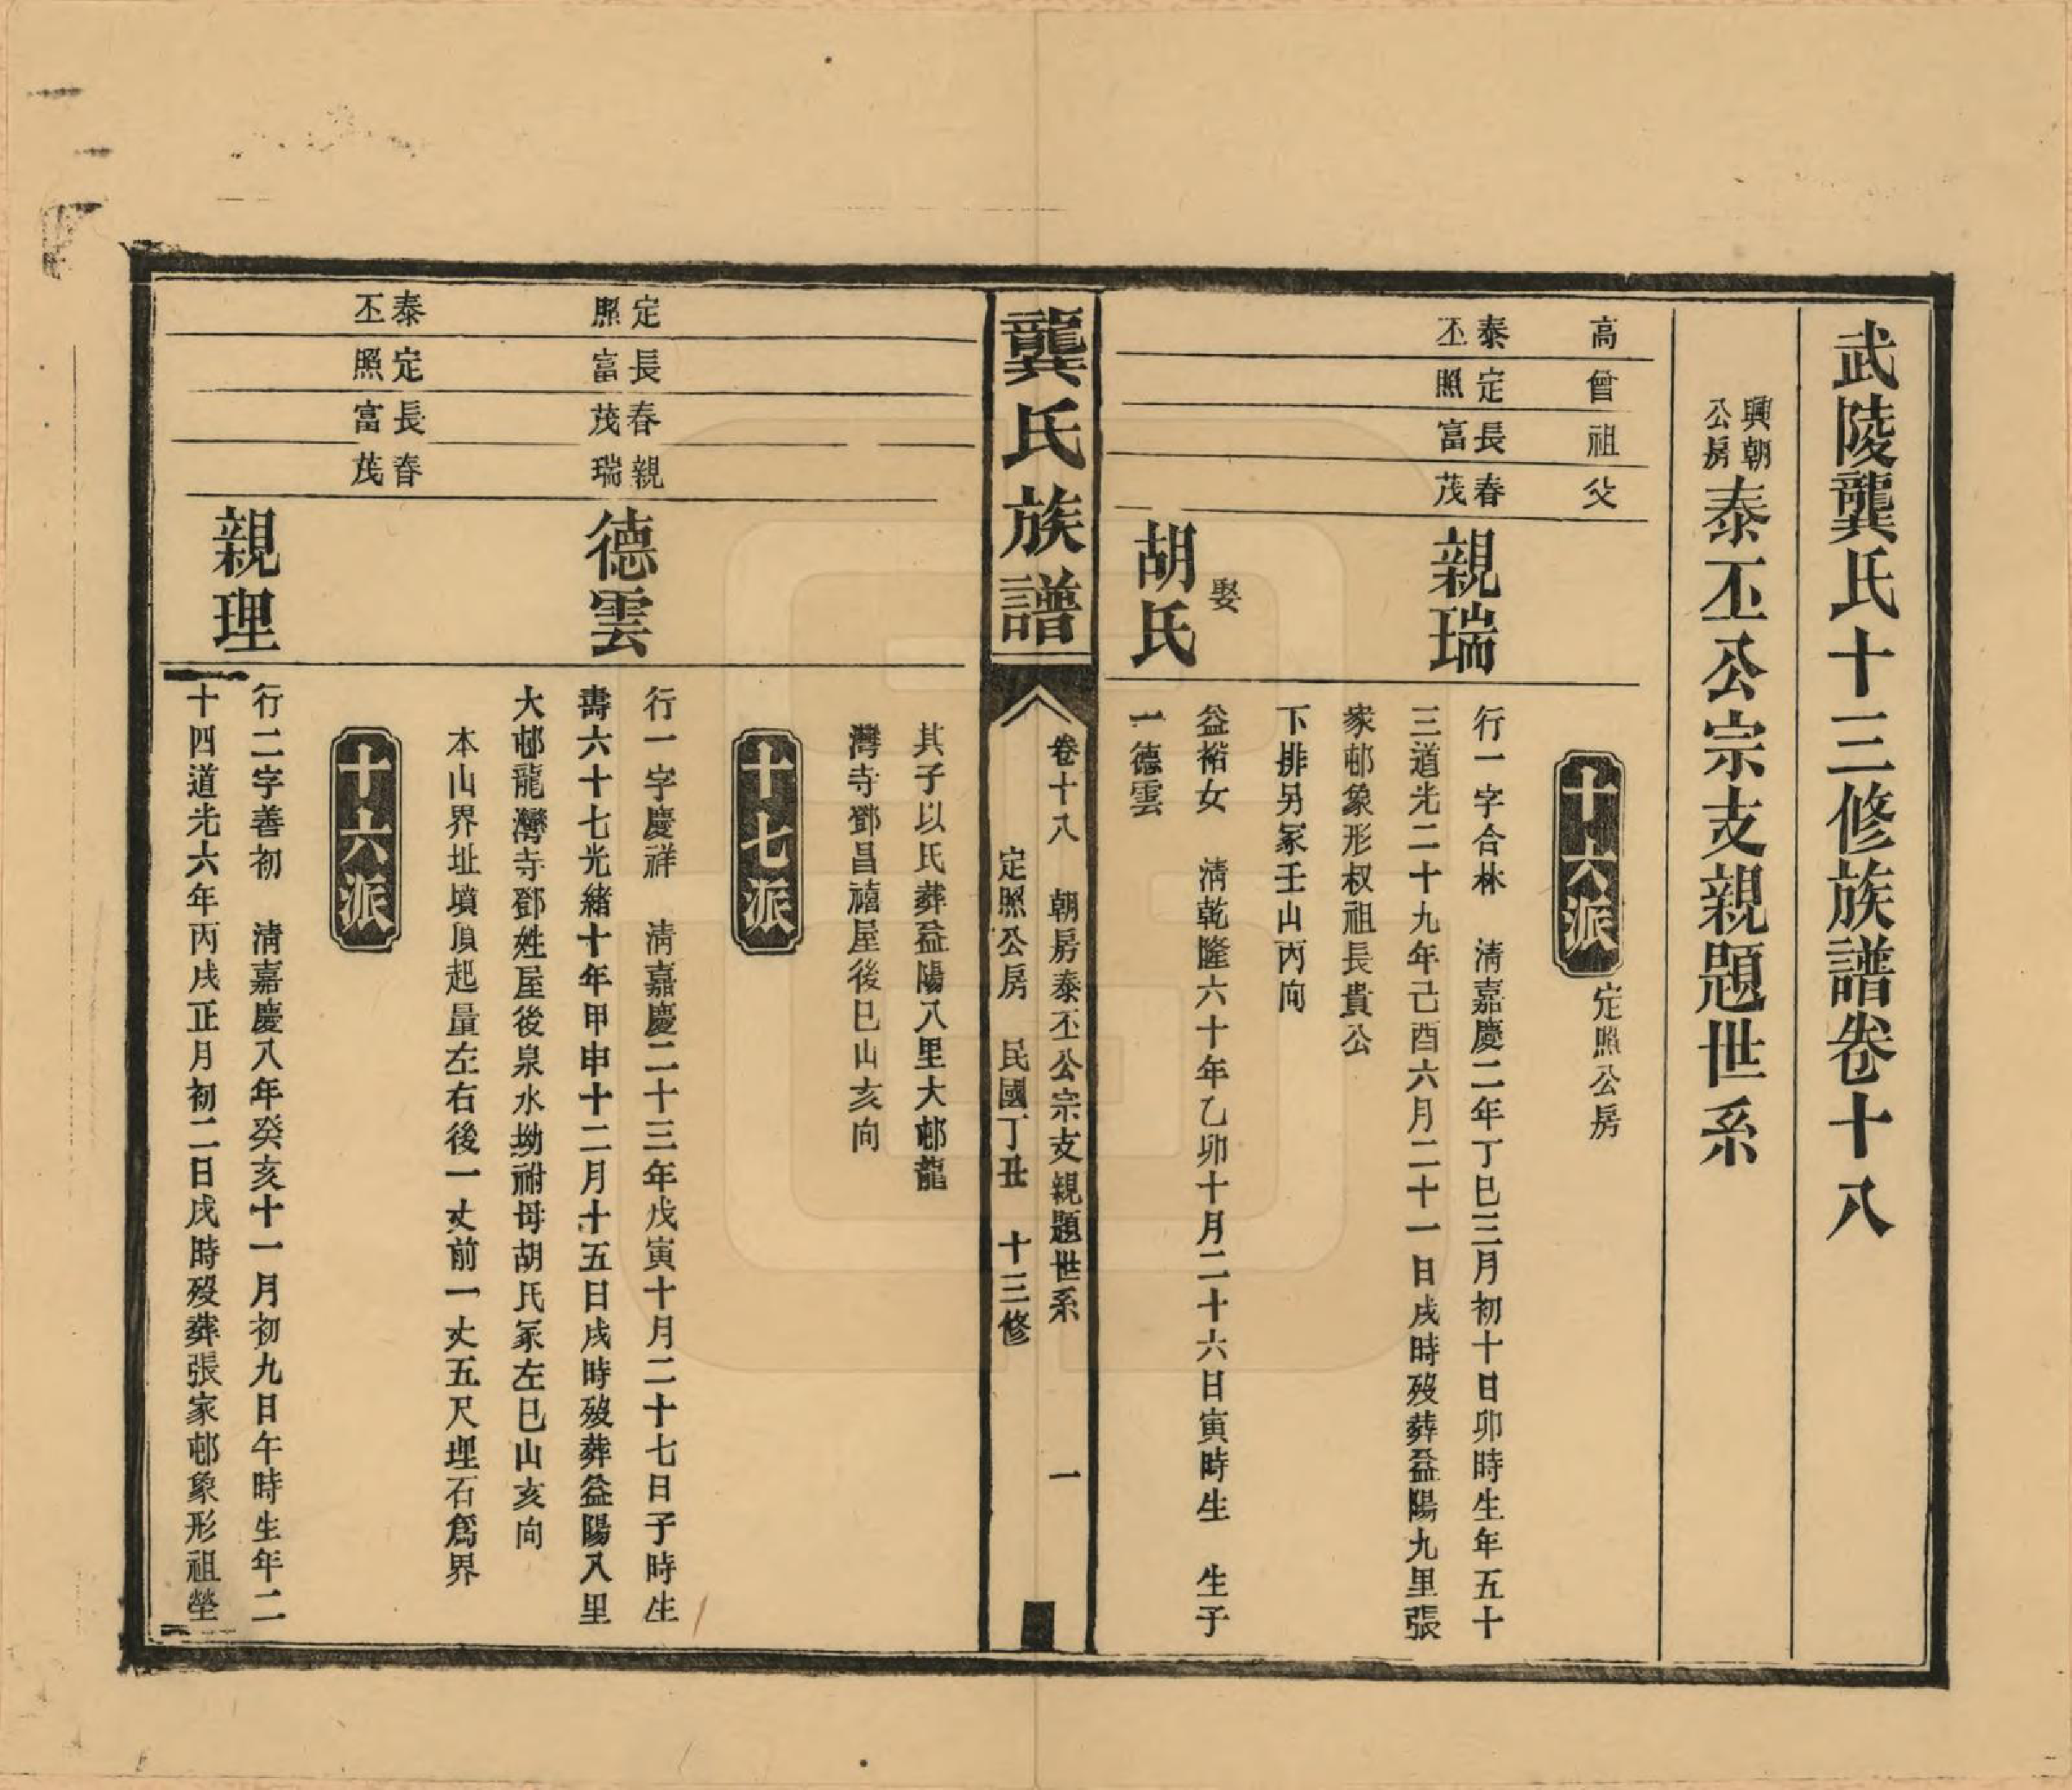 武陵龔氏十三修族譜卷十八
興朝公房
泰丕公宗支親題世系
高
曾
祖
父
十六派
定照公房
泰丕
定照
長富
春茂
親瑞
行一字合林　清嘉慶二年丁巳三月初十日卯時生年五十
三道光二十九年己酉六月二十一日戌時歿葬益陽九里張
家邨象形叔祖長貴公
下排另冢壬山丙向
娶
胡氏
益裕女　清乾隆六十年乙卯十月二十六日寅時生　生子
一德雲
龔氏族譜
卷十八　朝房泰丕公宗支親題世系　一
定照公房　民國丁丑　十三修
其子以氏葬益陽八里大邨龍
灣寺鄧昌禧屋後巳山亥向
十七派
定照
長富
春茂
親瑞
德雲
行一字慶祥　清嘉慶二十三年戊寅十月二十七日子時生
壽六十七光緒十年甲申十二月十五日戌時歿葬益陽八里
大邨龍灣寺鄧姓屋後泉水坳祔母胡氏冢左巳山亥向
本山界址墳頂起量左右後一丈前一丈五尺埋石爲界
十六派
泰丕
定照
長富
春茂
親理
行二字善初　清嘉慶八年癸亥十一月初九日午時生年二
十四道光六年丙戌正月初二日戌時歿葬張家邨象形祖塋